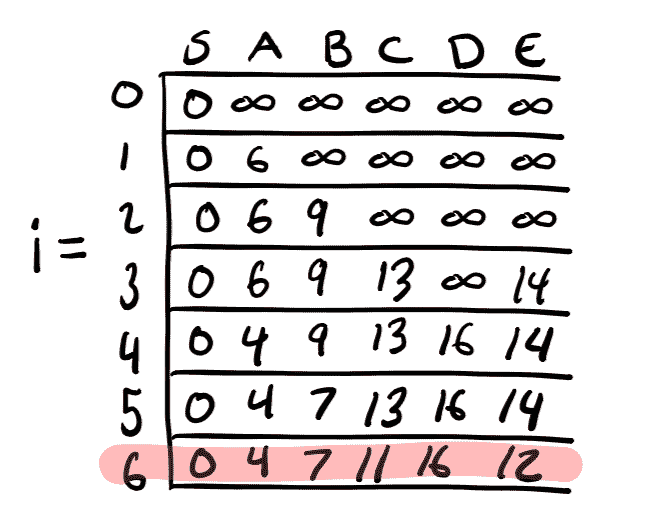 S A B C D E
0 0 ∞ ∞ ∞ ∞ ∞
1 0 6 ∞ ∞ ∞ ∞
2 0 6 9 ∞ ∞ ∞
i =
3 0 6 9 13 ∞ 14
4 0 4 9 13 16 14
5 0 4 7 13 16 14
6 0 4 7 11 16 12